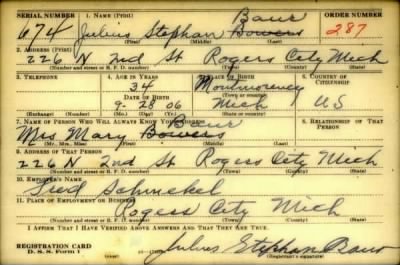 SERIAL NUMBER 1. NAME (Print) ORDER NUMBER
Baur
674 Julius Stephan Bowers 287
(First) (Middle) (Last)
2. ADDRESS (Print)
226 N 2nd St Rogers City Mich
(Number and street or R. F. D. number) (Town) (County) (State)
3. TELEPHONE 4. AGE IN YEARS 5. PLACE OF BIRTH 6. COUNTRY OF CITIZENSHIP
34 Montmorency
DATE OF BIRTH (Town or county)
9-28-06 Mich US
(Exchange) (Number) (Mo.) (Day) (Yr.) (State or country)
7. NAME OF PERSON WHO WILL ALWAYS KNOW YOUR ADDRESS 8. RELATIONSHIP OF THAT PERSON
Baur
Mrs Mary Bowers
(Mr., Mrs., Miss) (First) (Middle) (Last)
9. ADDRESS OF THAT PERSON
226 N 2nd St Rogers City Mich
(Number and street or R. F. D. number) (Town) (County) (State)
10. EMPLOYER'S NAME
Fred Schmekel
11. PLACE OF EMPLOYMENT OR BUSINESS
Rogers City Mich
(Number and street or R. F. D. number) (Town) (County) (State)
I AFFIRM THAT I HAVE VERIFIED ABOVE ANSWERS AND THAT THEY ARE TRUE.
REGISTRATION CARD
D. S. S. Form 1 Julius Stephan Baur
(Registrant's signature)